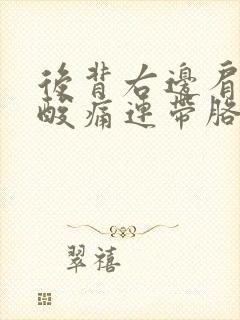 後背右邊肩
酸痛連帶胳
翠禧